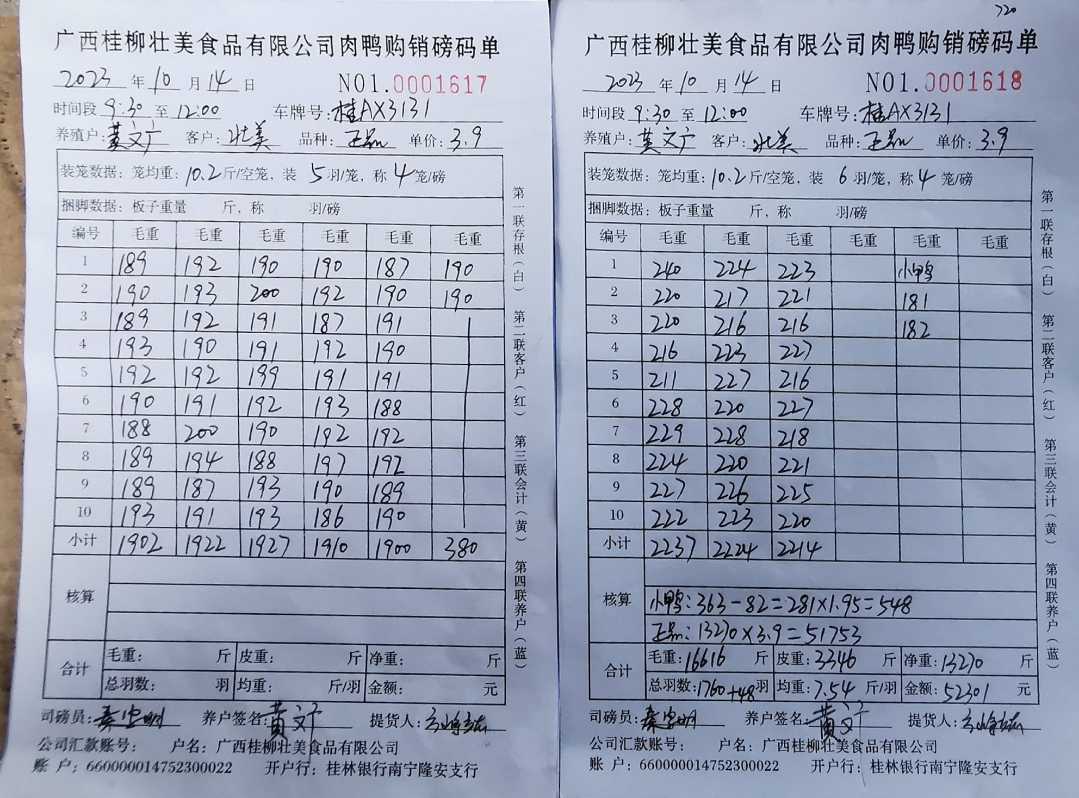 广西桂柳壮美食品有限公司肉鸭购销磅码单
2023 年 10 月 14 日 NO1.0001617
时间段 9:30 至 12:00 车牌号: 桂AX3131
养殖户: 黄文广 客户: 壮美 品种: 正品 单价: 3.9
装笼数据: 笼均重: 10.2 斤/空笼, 装 5 羽/笼, 称 4 笼/磅
捆脚数据: 板子重量 斤, 称 羽/磅
编号 毛重 毛重 毛重 毛重 毛重 毛重
1 189 192 190 190 187 190
2 190 193 200 192 190 190
3 189 192 191 187 191
4 193 190 191 192 190
5 192 192 199 191 191
6 190 191 192 193 188
7 188 200 190 192 192
8 189 194 188 197 192
9 189 187 193 190 189
10 193 191 193 186 190
小计 1902 1922 1927 1910 1900 380
核算
合计 毛重: 斤 皮重: 斤 净重: 斤
总羽数: 羽 均重: 斤/羽 金额: 元
司磅员: 养户签名: 黄文广 提货人:
公司汇款账号: 户名: 广西桂柳壮美食品有限公司
账 户: 660000014752300022 开户行: 桂林银行南宁隆安支行
第一联存根(白) 第二联客户(红) 第三联会计(黄) 第四联养户(蓝)
720
广西桂柳壮美食品有限公司肉鸭购销磅码单
2023 年 10 月 14 日 NO1.0001618
时间段 9:30 至 12:00 车牌号: 桂AX3131
养殖户: 黄文广 客户: 壮美 品种: 正品 单价: 3.9
装笼数据: 笼均重: 10.2 斤/空笼, 装 6 羽/笼, 称 4 笼/磅
捆脚数据: 板子重量 斤, 称 羽/磅
编号 毛重 毛重 毛重 毛重 毛重 毛重
1 240 224 223 小鸭
2 220 217 221 181
3 220 216 216 182
4 216 223 227
5 211 227 216
6 228 220 227
7 229 228 218
8 224 220 221
9 227 226 225
10 222 223 220
小计 2237 2224 2214
核算 小鸭: 363-82=281×1.95=548
正品: 13270×3.9=51753
合计 毛重: 16616 斤 皮重: 3346 斤 净重: 13270 斤
总羽数: 1760+48 羽 均重: 7.54 斤/羽 金额: 52301 元
司磅员: 养户签名: 黄文广 提货人:
公司汇款账号: 户名: 广西桂柳壮美食品有限公司
账 户: 660000014752300022 开户行: 桂林银行南宁隆安支行
第一联存根(白) 第二联客户(红) 第三联会计(黄) 第四联养户(蓝)